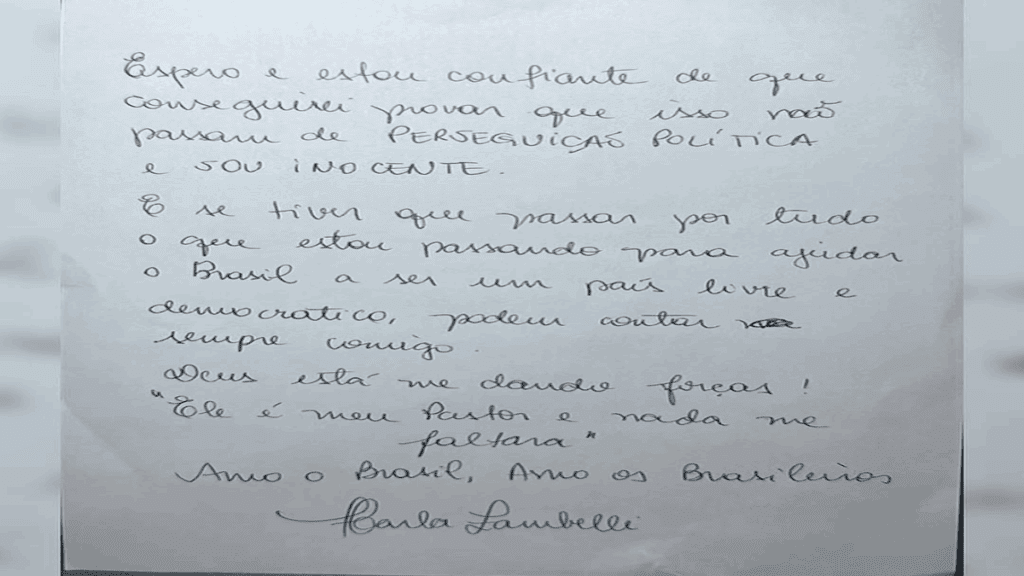 Espero e estou confiante de que
conseguirei provar que isso não
passam de PERSEGUIÇÃO POLÍTICA
e SOU INOCENTE.
E se tiver que passar por tudo
o que estou passando para ajudar
o Brasil a ser um país livre e
democratico, podem contar
sempre comigo.
Deus está me dando forças!
"Ele é meu Pastor e nada me
faltara"
Amo o Brasil, Amo os Brasileiros
Carla Zambelli